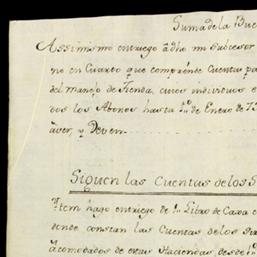 Suma de la Buel
Assimismo entriego âdho mi subcesor
no en Quarto que comprénde Cuentas pa
del manejo de Tienda, cuios individuos e
dos los Abonos hasta 1º de Enero de 75
âver, y Deven
Siguen las Cuentas de los S
Ytem hago entriego de 1 Libro de Caxa e
donde constan las Cuentas de los Sir
âcomodados de estas Haciendas, desde 1º